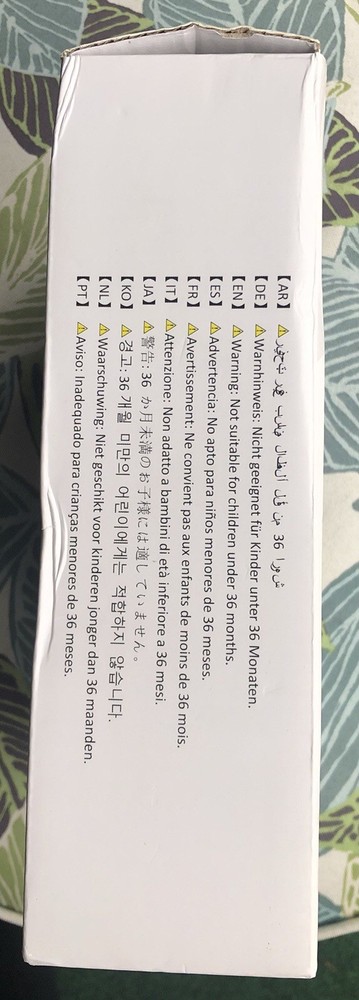 【AR】⚠تحذير: غير
【DE】⚠Warnhinweis: Nicht geeignet für Kinder unter 36 Monaten.
【EN】⚠Warning: Not suitable for children under 36 months.
【ES】⚠Advertencia: No apto para niños menores de 36 meses.
【FR】⚠Avertissement: Ne convient pas aux enfants de moins de 36 mois.
【IT】⚠Attenzione: Non adatto a bambini di età inferiore a 36 mesi.
【JA】⚠警告: 36 か月未満のお子様には適していません。
【KO】⚠경고: 36 개월 미만의 어린이에게는 적합하지 않습니다.
【NL】⚠Waarschuwing: Niet geschikt voor kinderen jonger dan 36 maanden.
【PT】⚠Aviso: Inadequado para crianças menores de 36 meses.